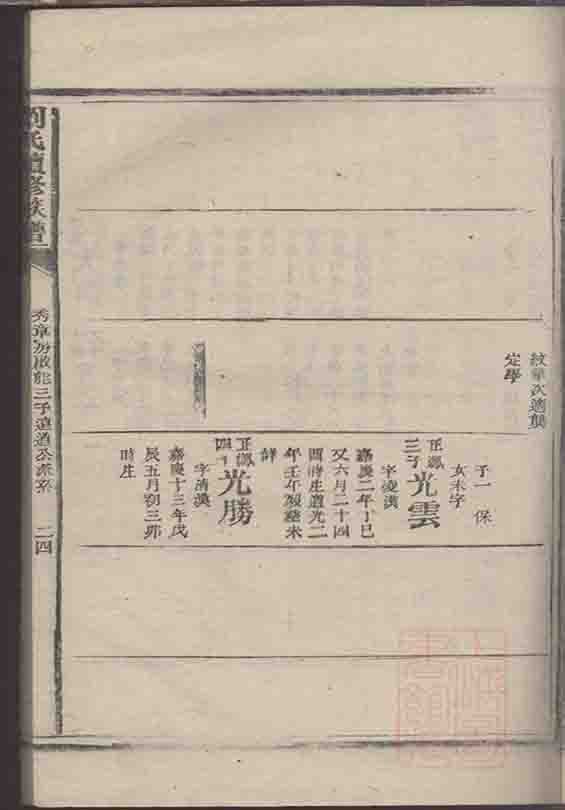 紋華次適龔
定學
子一 保
女未字
正鳳三子 光雲
字淩漢
嘉慶二年丁巳
又六月二十四
酉時生道光二
年壬午歿塟未
詳
正鳳四子 光勝
字清漢
嘉慶十三年戊
辰五月初三卯
時生
劉氏續修族譜
秀章房啟能三子遠道公派系 二四